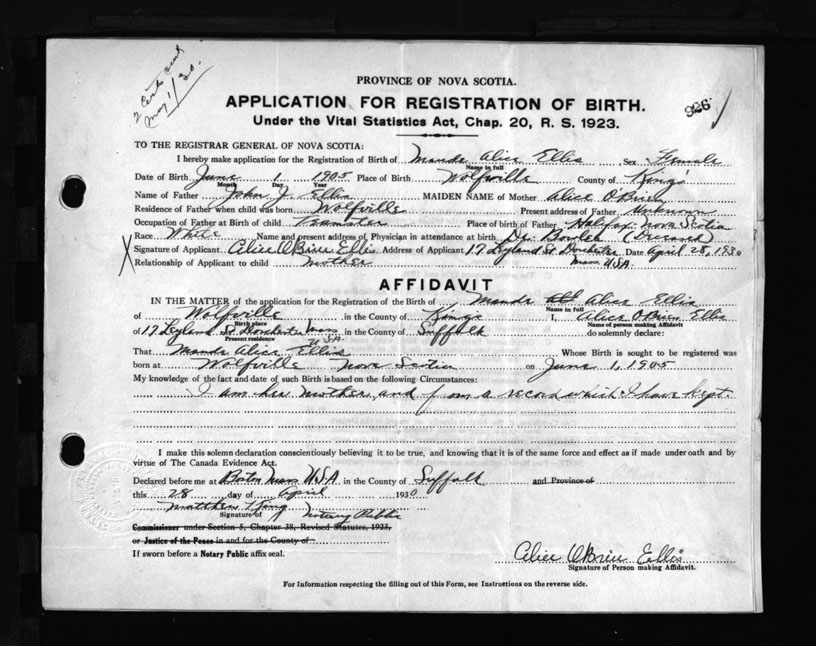 2 Cents sent
May 1/30.
PROVINCE OF NOVA SCOTIA.
926
APPLICATION FOR REGISTRATION OF BIRTH.
Under the Vital Statistics Act, Chap. 20, R. S. 1923.
TO THE REGISTRAR GENERAL OF NOVA SCOTIA:
I hereby make application for the Registration of Birth of Maude Alice Ellis Sex Female
Name in full
Date of Birth June 1 1905 Place of Birth Wolfville County of Kings
Month Day Year
Name of Father John J. Ellis MAIDEN NAME of Mother Alice O'Brien
Residence of Father when child was born Wolfville Present address of Father Unknown
Occupation of Father at Birth of child Teamster Place of birth of Father Halifax Nova Scotia
Race White Name and present address of Physician in attendance at birth Dr. Bowles (Deceased)
X Signature of Applicant Alice O'Brien Ellis Address of Applicant 17 Leyland St Dorchester Date April 28, 1930
Relationship of Applicant to child mother Mass USA.
AFFIDAVIT
IN THE MATTER of the application for the Registration of the Birth of Maude Alice Ellis
Name in full
of Wolfville in the County of Kings I, Alice O'Brien Ellis
Birth place Name of person making Affidavit
of 17 Leyland St Dorchester Mass in the County of Suffolk do solemnly declare:
Present residence USA.
That Maude Alice Ellis Whose Birth is sought to be registered was
born at Wolfville Nova Scotia on June 1, 1905
My knowledge of the fact and date of such Birth is based on the following Circumstances:
I am her mother and from a record which I have kept.
I make this solemn declaration conscientiously believing it to be true, and knowing that it is of the same force and effect as if made under oath and by
virtue of The Canada Evidence Act.
Declared before me at Boston Mass USA in the County of Suffolk and Province of
this 28 day of April 1930
Matthew King
Signature of Notary Public
Commissioner under Section 5, Chapter 38, Revised Statutes, 1923,
or Justice of the Peace in and for the County of
If sworn before a Notary Public affix seal.
Alice O'Brien Ellis
Signature of Person making Affidavit.
For Information respecting the filling out of this Form, see Instructions on the reverse side.